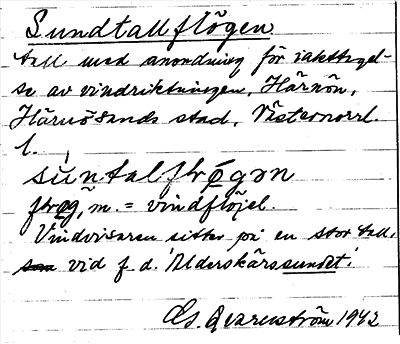 Sundtallflögen
tall med anordning för iakttagel-
se av vindriktningen, Härnön,
Härnösands stad, Västernorrl.
l.
súntalfløgən
fløg, m. = vindflöjel.
Vindvisaren sitter på en stor tall,
vid f. d. Alderskärssundet.
G. Qvarnström 1942